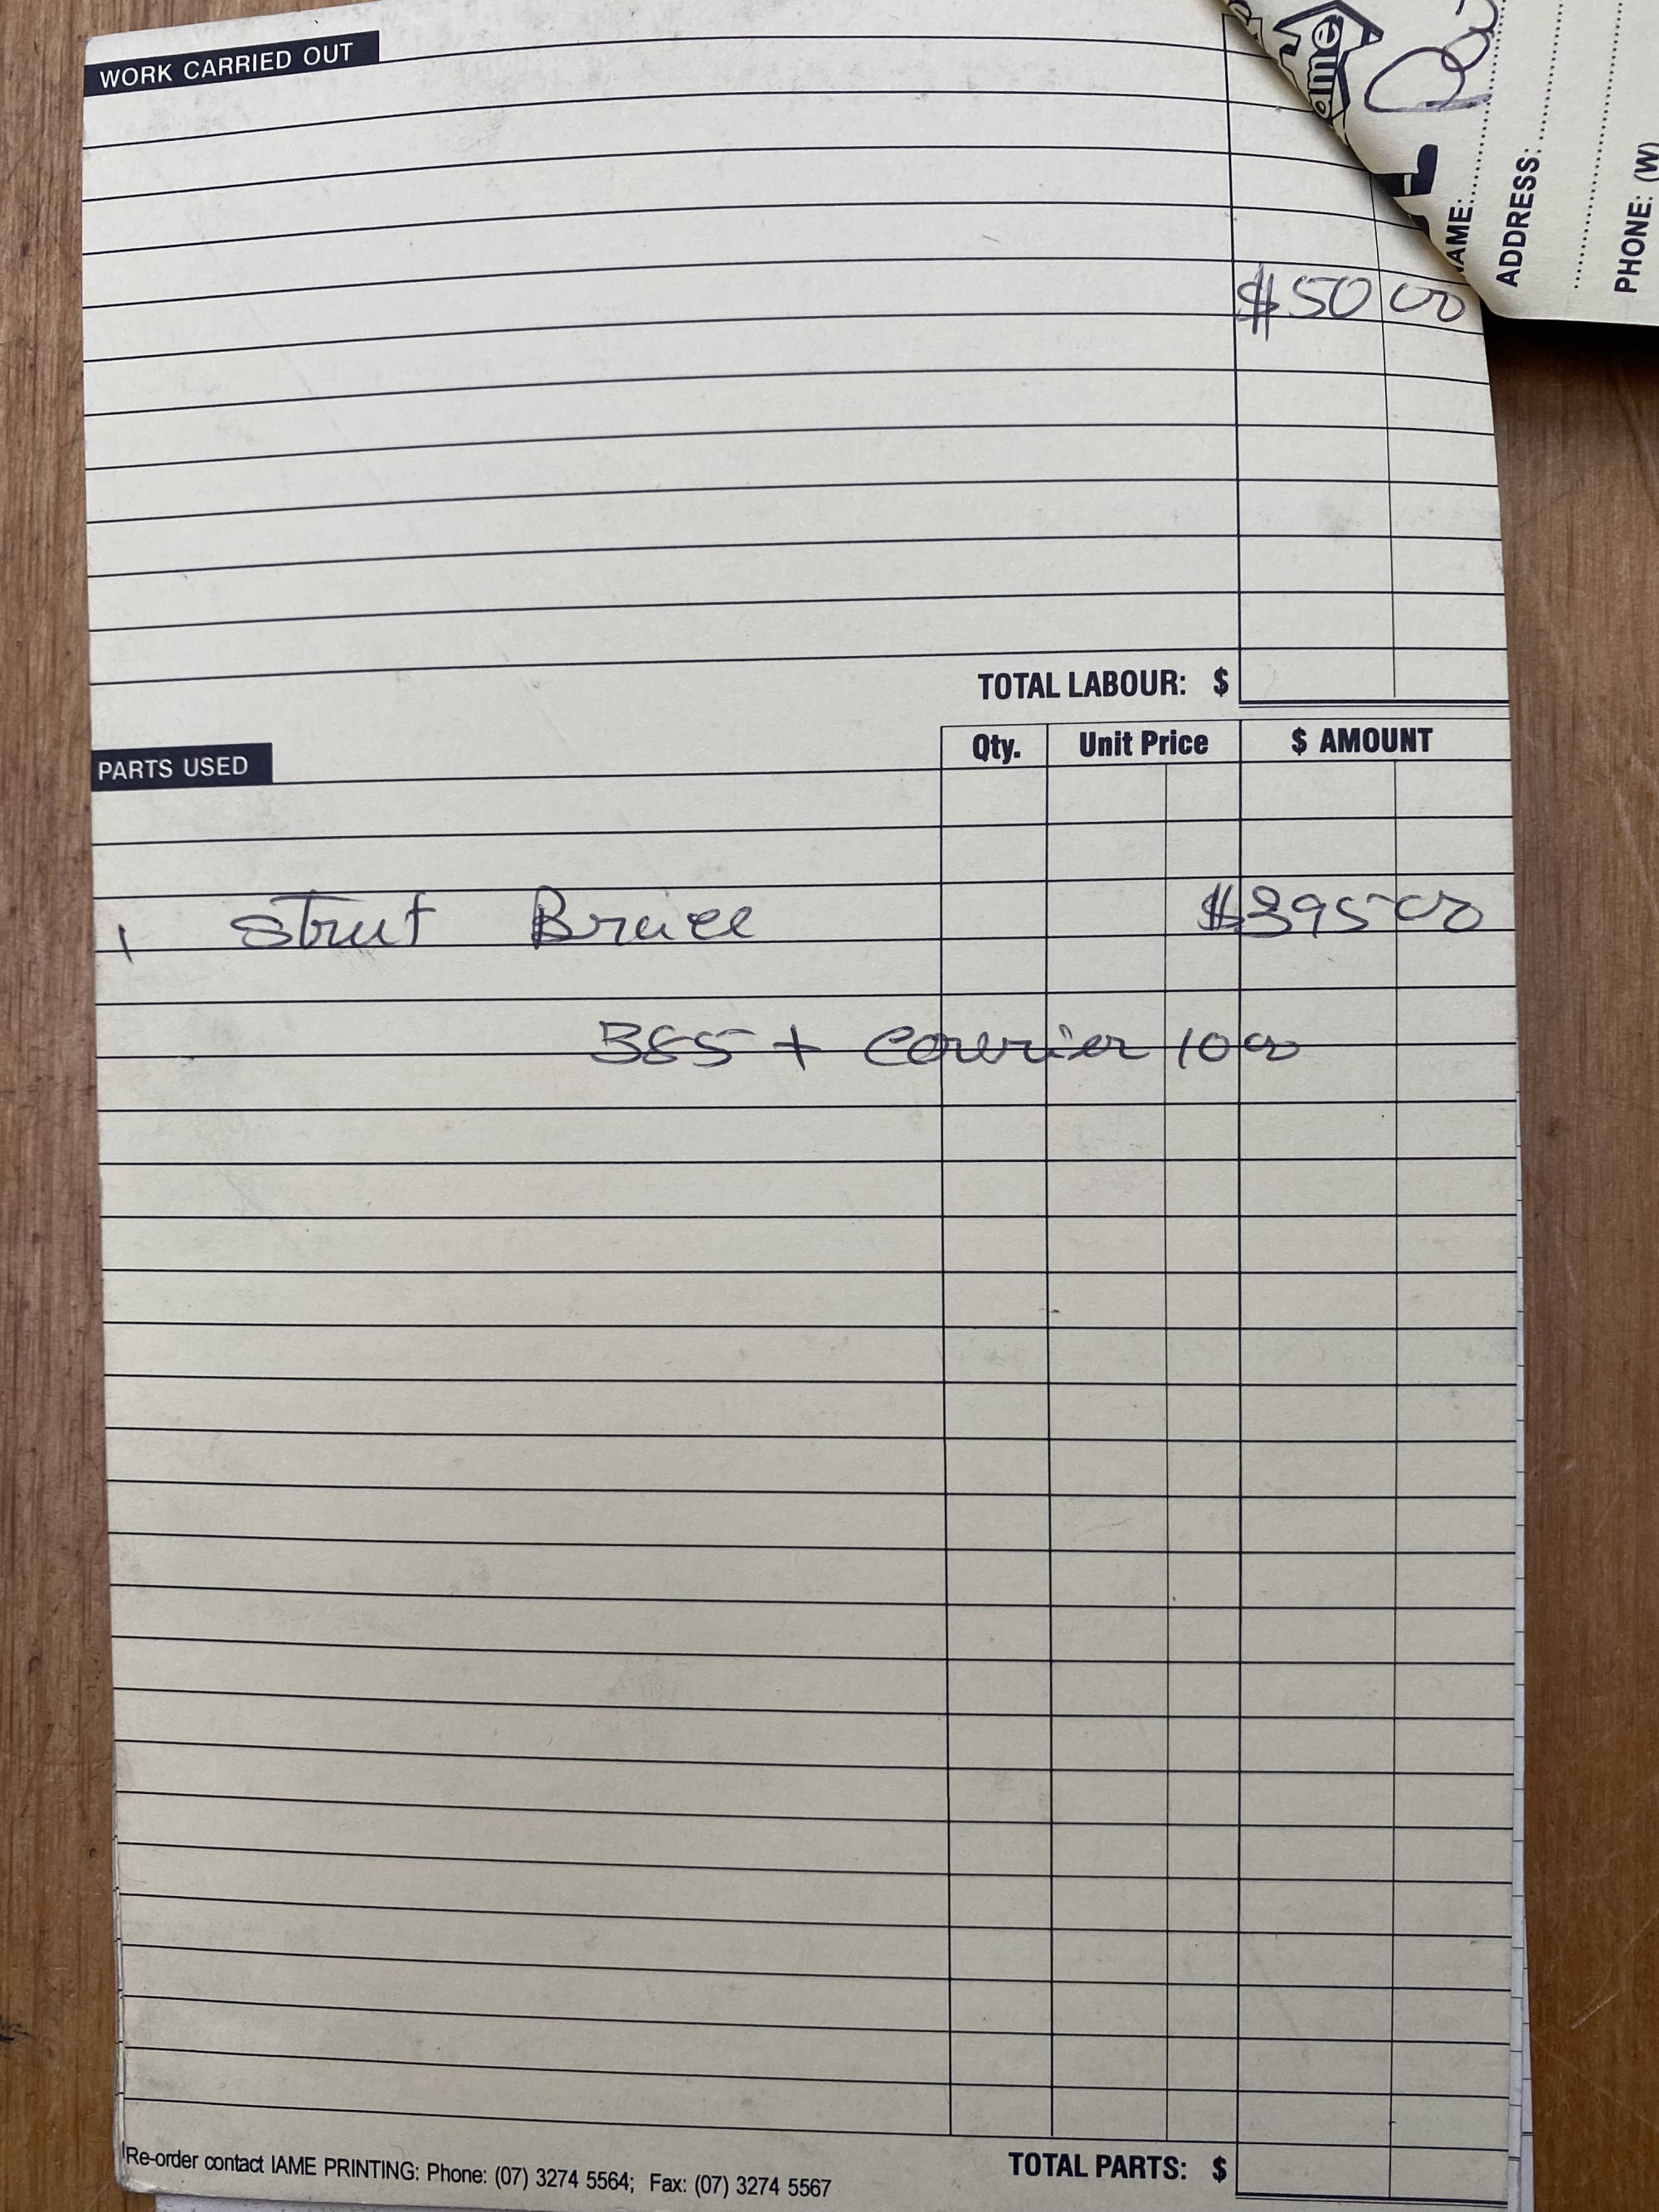 WORK CARRIED OUT
$50 00
TOTAL LABOUR: $
PARTS USED Qty. Unit Price $ AMOUNT
1 strut Brace $395 00
385 + courier 10 00
Re-order contact IAME PRINTING: Phone: (07) 3274 5564; Fax: (07) 3274 5567
TOTAL PARTS: $
ame
NAME:
ADDRESS:
PHONE: (W)